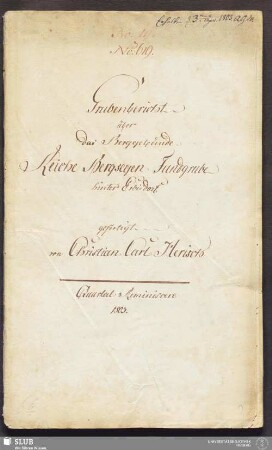 No: 619.
Grubenbericht
über
das Berggebäude
Reiche Bergseegen Fundgrube
hinter Erbisdorf
gefertigt
von Christian Carl Herisch
Quartal Reminiscere
1825.
SLUB